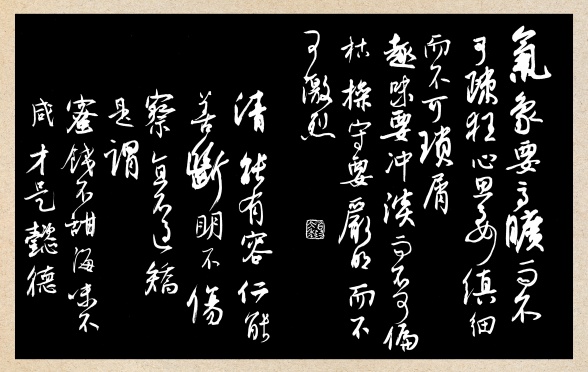 氣象要高曠而不
可疎狂心思要縝細
而不可瑣屑
趣味要冲淡而不可偏
枯操守要嚴明而不
可激烈
清能有容仁能
善斷明不傷
察直不過矯
是謂
蜜餞不甜海味不
咸才是懿德